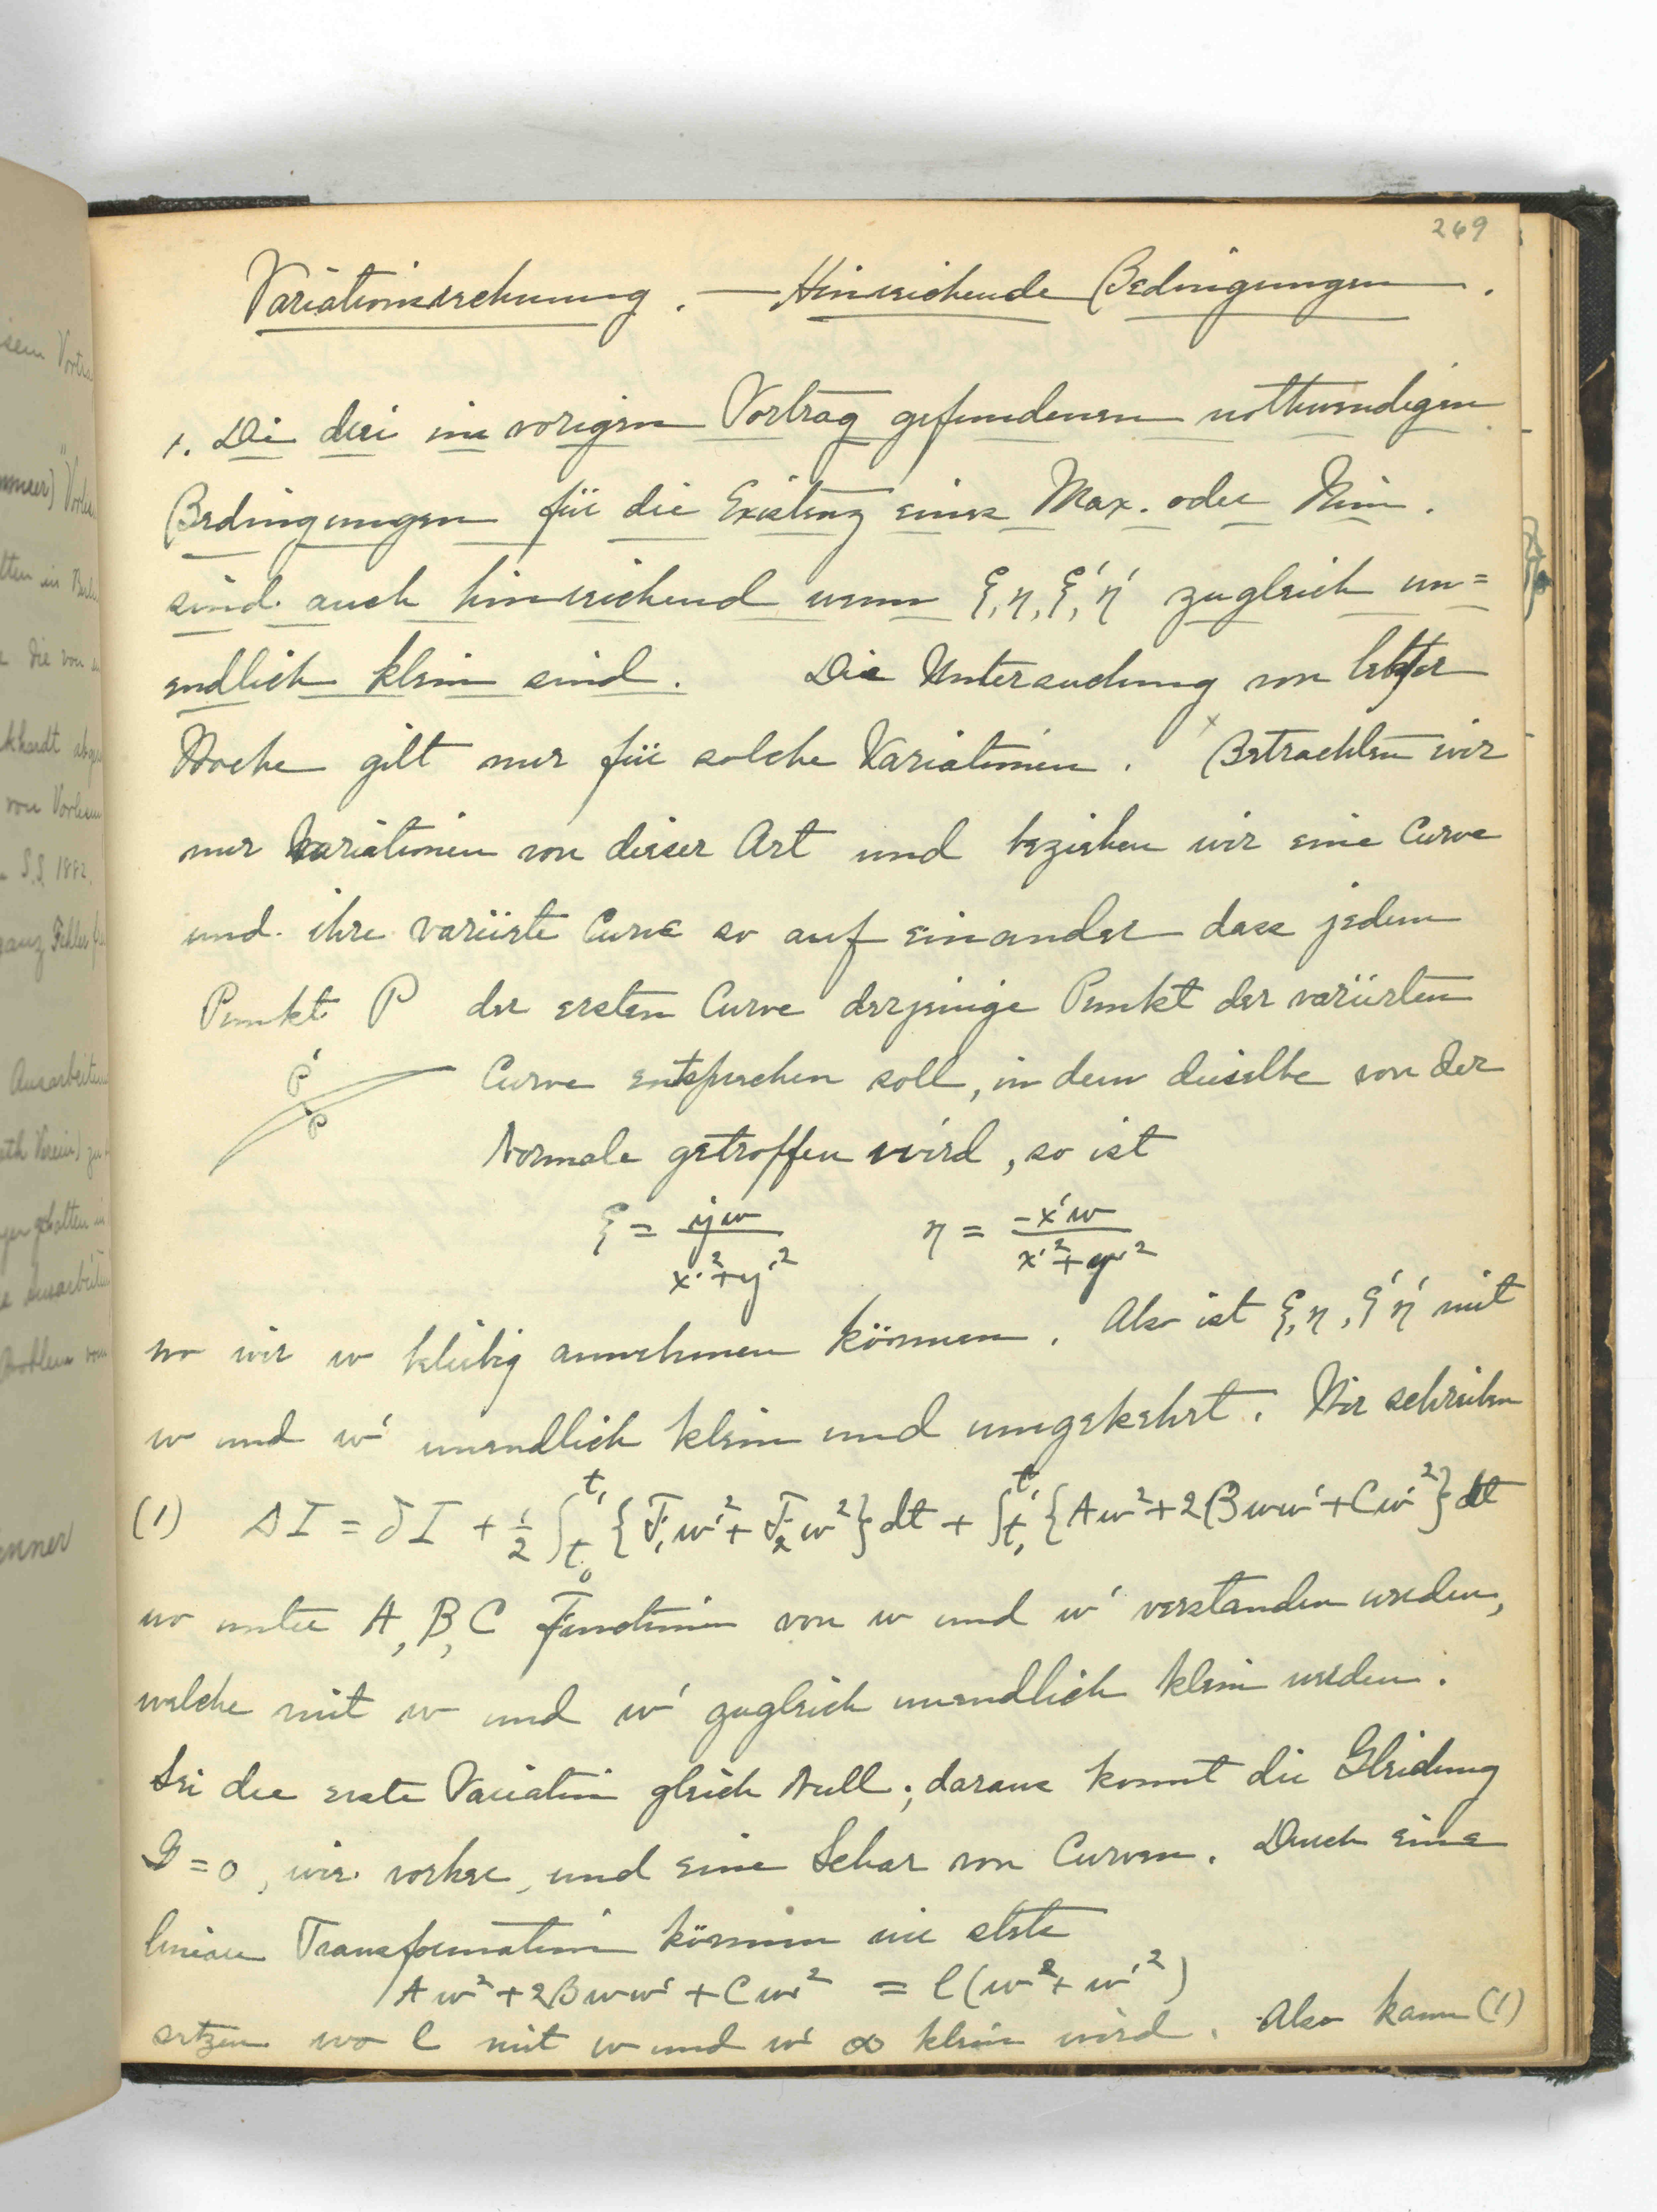 269
Variationsrechnung. — Hinreichende Bedingungen.
1. Die drei im vorigen Vortrag gefundenen nothwendigen
Bedingungen für die Existenz eines Max. oder Min.
sind auch hinreichend wenn ξ, η, ξ', η' zugleich un=
endlich klein sind. Die Untersuchung von letzter
Woche gilt nur für solche Variationen. x Betrachten wir
nur Variationen von dieser Art und beziehen wir eine Curve
und ihre variirte Curve so auf einander dass jedem
Punkt P der ersten Curve derjenige Punkt der variirten
P' P
Curve entsprechen soll, in dem dieselbe von der
Normale getroffen wird, so ist
ξ = y'w / x'²+y'² η = -x'w / x'²+y'²
wo wir w beliebig annehmen können. Also ist ξ, η, ξ' η' mit
w und w' unendlich klein und umgekehrt. Wir schreiben
(1) ΔI = δI + ½ ∫_{t₀}^{t₁} {F₁w'² + F₂w²} dt + ∫_{t₀}^{t₁} {Aw² + 2Bww' + Cw'²} dt
wo unter A, B, C Functionen von w und w' verstanden werden,
welche mit w und w' zugleich unendlich klein werden.
Sei die erste Variation gleich Null; daraus kommt die Gleichung
G = 0, wie vorher, und eine Schar von Curven. Durch eine
lineare Transformation können wir stets
Aw² + 2Bww' + Cw'² = l(w² + w'²)
setzen wo l mit w und w' ∞ klein wird. Also kann (1)
isem Vortra
Vorles
tten in Berlin
Die von
khardt
von Vorlesun
S.S. 1882.
ganz Fehler
Ausarbeitun
ath Verein) zu
gehalten in
Ausarbeitu
Problem vom